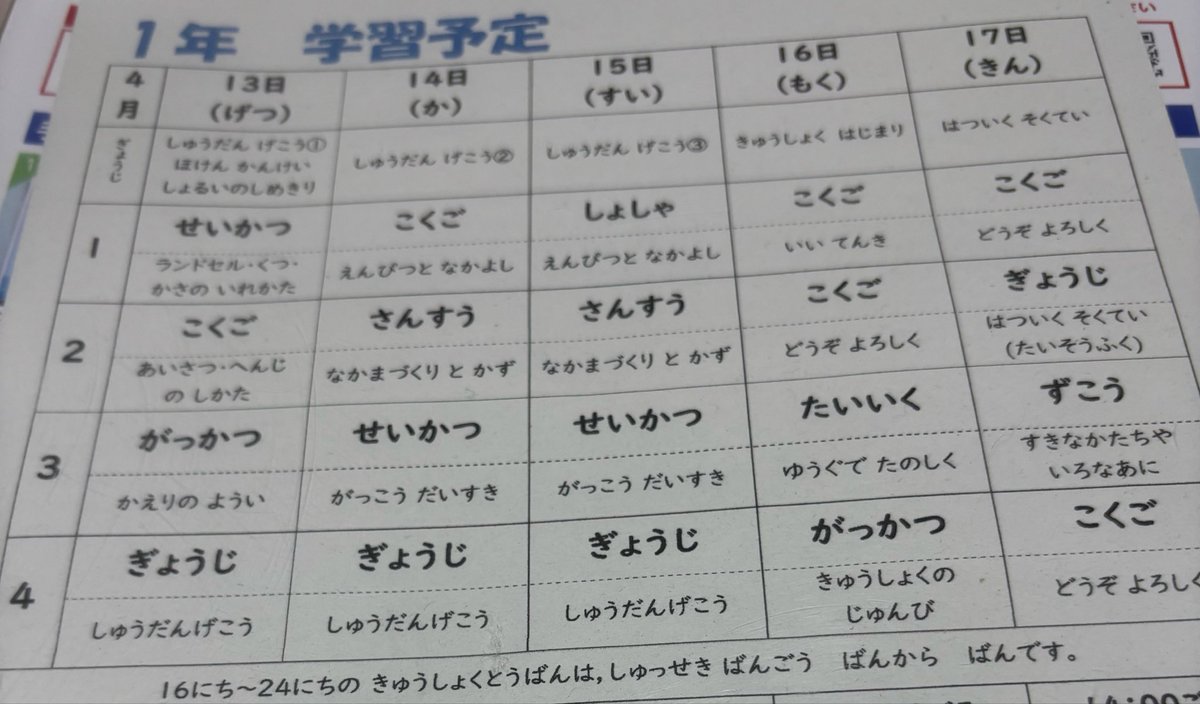 1年 学習予定
4月
13日
(げつ)
14日
(か)
15日
(すい)
16日
(もく)
17日
(きん)
ぎょうじ
しゅうだん げこう①
ほけん かんけい
しょるいのしめきり
しゅうだん げこう②
しゅうだん げこう③
きゅうしょく はじまり
はついく そくてい
1
せいかつ
ランドセル・くつ・
かさの いれかた
こくご
えんぴつと なかよし
しょしゃ
えんぴつと なかよし
こくご
いい てんき
こくご
どうぞ よろしく
2
こくご
あいさつ・へんじ
の しかた
さんすう
なかまづくり と かず
さんすう
なかまづくり と かず
こくご
どうぞ よろしく
ぎょうじ
はついく そくてい
(たいそうふく)
3
がっかつ
かえりの ようい
せいかつ
がっこう だいすき
せいかつ
がっこう だいすき
たいいく
ゆうぐで たのしく
ずこう
すきなかたちや
いろなあに
4
ぎょうじ
しゅうだんげこう
ぎょうじ
しゅうだんげこう
ぎょうじ
しゅうだんげこう
がっかつ
きゅうしょくの
じゅんび
こくご
どうぞ よろしく
16にち~24にちの きゅうしょくとうばんは,しゅっせき ばんごう　ばんから　ばんです。